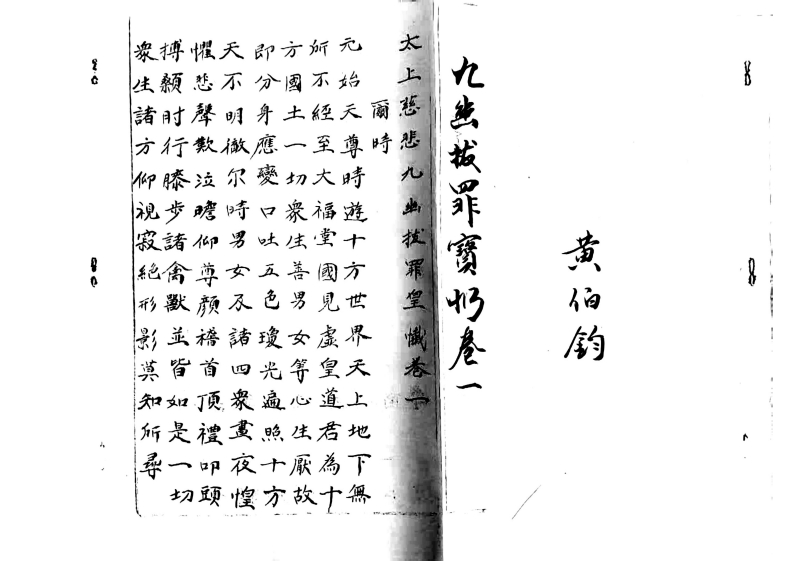 黄伯鈞
九幽拔罪寶忏卷一
太上慈悲九幽拔罪皇懺卷一
爾時
元始天尊時遊十方世界天上地下無
所不經至大福堂國見虛皇道君為十
方國土一切衆生善男女等心生厭故
即分身應變口吐五色瓊光遍照十方
天不明徹尔時男女及諸四衆晝夜惶
懼悲聲歎泣瞻仰尊顏稽首頂禮叩頭
搏顙肘行膝步諸禽獸並皆如是一切
衆生諸方仰視寂絕形影莫知所尋